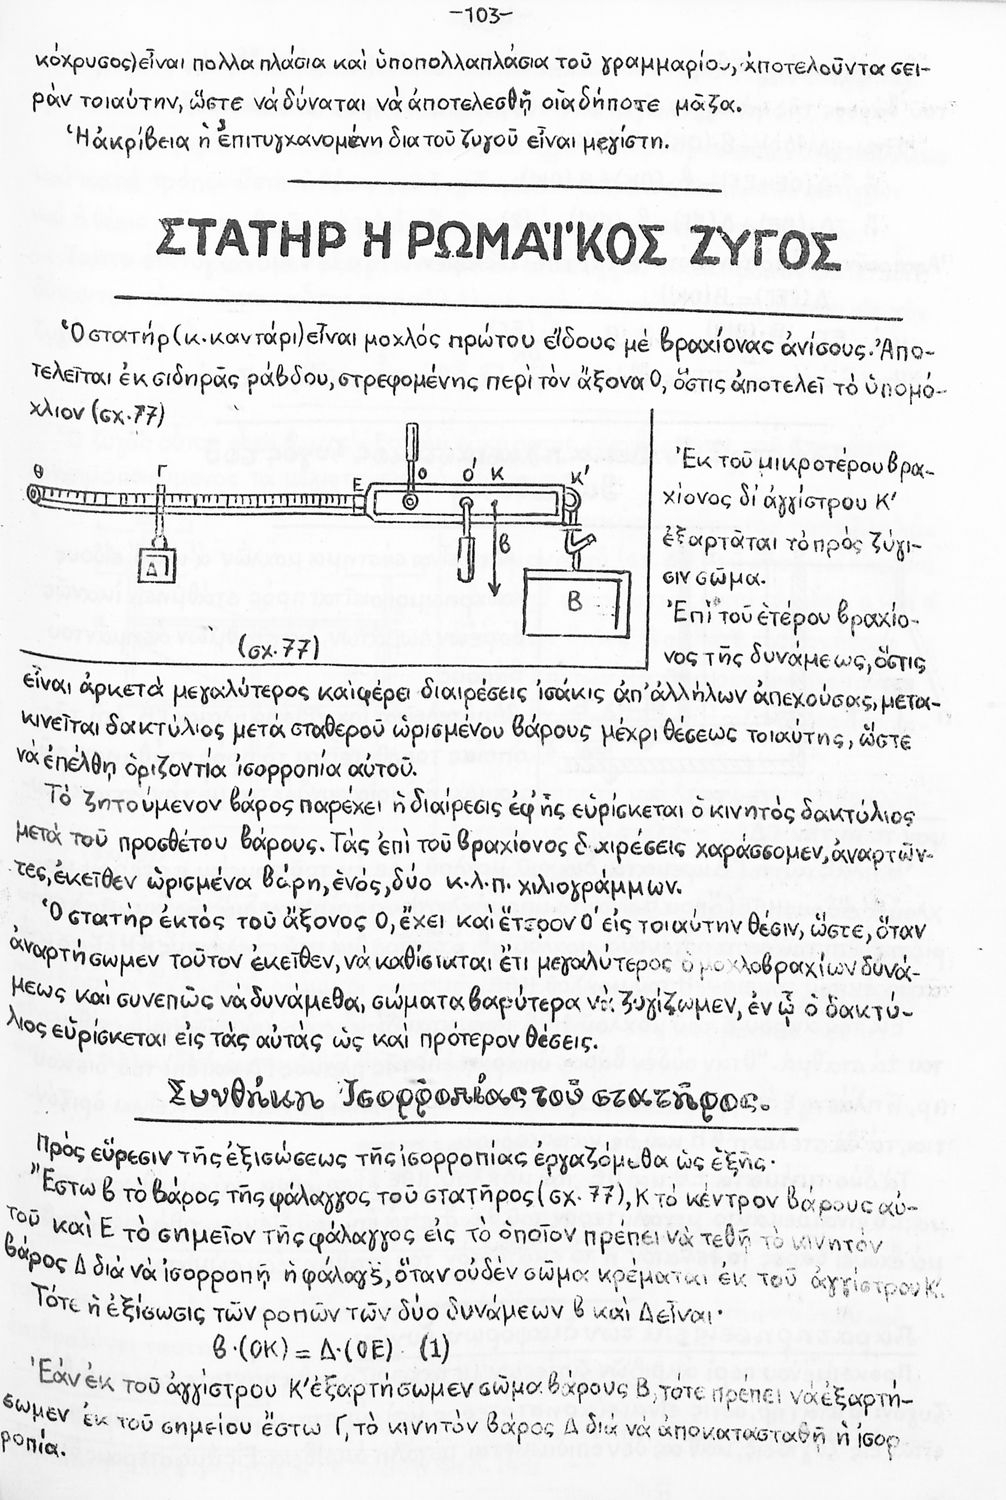 -103-
κόχρυσος) εἶναι πολλαπλάσια καὶ ὑποπολλαπλάσια τοῦ γραμμαρίου, ἀποτελοῦντα σει-
ρὰν τοιαύτην, ὥστε νὰ δύναται νὰ ἀποτελεσθῇ οἱαδήποτε μᾶζα.
Ἡ ἀκρίβεια ἡ ἐπιτυγχανομένη δια τοῦ ζυγοῦ εἶναι μεγίστη.
ΣΤΑΤΗΡ Η ΡΩΜΑΪΚΟΣ ΖΥΓΟΣ
Ὁ στατήρ (κ. καντάρι) εἶναι μοχλός πρώτου εἴδους μὲ βραχίονας ἀνίσους. Ἀπο-
τελεῖται ἐκ σιδηρᾶς ράβδου, στρεφομένης περὶ τὸν ἄξονα Ο, ὅστις ἀποτελεῖ τὸ ὑπομό-
χλιον (σχ. 77)
Θ Γ Ε Ο Ο' Κ Κ'
β
Δ
Β
(σχ. 77)
Ἐκ τοῦ μικροτέρου βρα-
χίονος δι' ἀγγίστρου Κ'
ἐξαρτᾶται τὸ πρὸς ζύγι-
σιν σῶμα.
Ἐπὶ τοῦ ἑτέρου βραχίο-
νος τῆς δυνάμεως, ὅστις
εἶναι ἀρκετὰ μεγαλύτερος καὶ φέρει διαιρέσεις ἰσάκις ἀπ' ἀλλήλων ἀπεχούσας, μετα-
κινεῖται δακτύλιος μετὰ σταθεροῦ ὡρισμένου βάρους μέχρι θέσεως τοιαύτης, ὥστε
νὰ ἐπέλθῃ ὁριζοντία ἰσορροπία αὐτοῦ.
Τὸ ζητούμενον βάρος παρέχει ἡ διαίρεσις ἐφ' ἧς εὑρίσκεται ὁ κινητὸς δακτύλιος
μετὰ τοῦ προσθέτου βάρους. Τὰς ἐπὶ τοῦ βραχίονος διαιρέσεις χαράσσομεν, ἀναρτῶν-
τες, ἐκεῖθεν ὡρισμένα βάρη, ἑνός, δύο κ.λ.π. χιλιογράμμων.
Ὁ στατήρ ἐκτὸς τοῦ ἄξονος Ο, ἔχει καὶ ἕτερον Ο' εἰς τοιαύτην θέσιν, ὥστε, ὅταν
ἀναρτήσωμεν τοῦτον ἐκεῖθεν, νὰ καθίσταται ἔτι μεγαλύτερος ὁ μοχλοβραχίων δυνά-
μεως καὶ συνεπῶς νὰ δυνάμεθα, σώματα βαρύτερα νὰ ζυγίζωμεν, ἐν ᾧ ὁ δακτύ-
λιος εὑρίσκεται εἰς τὰς αὐτὰς ὡς καὶ πρότερον θέσεις.
Συνθήκη Ἰσορροπίας τοῦ στατῆρος.
Πρὸς εὕρεσιν τῆς ἐξισώσεως τῆς ἰσορροπίας ἐργαζόμεθα ὡς ἑξῆς.
Ἔστω β τὸ βάρος τῆς φάλαγγος τοῦ στατῆρος (σχ. 77), Κ τὸ κέντρον βάρους αὐ-
τοῦ καὶ Ε τὸ σημεῖον τῆς φάλαγγος εἰς τὸ ὁποῖον πρέπει νὰ τεθῇ τὸ κινητὸν
βάρος Δ διὰ νὰ ἰσορροπῇ ἡ φάλαγξ, ὅταν οὐδὲν σῶμα κρέμαται ἐκ τοῦ ἀγγίστρου Κ'.
Τότε ἡ ἐξίσωσις τῶν ροπῶν τῶν δύο δυνάμεων β καὶ Δ εἶναι·
β·(ΟΚ) = Δ·(ΟΕ) (1)
Ἐὰν ἐκ τοῦ ἀγγίστρου Κ' ἐξαρτήσωμεν σῶμα βάρους Β, τότε πρέπει νὰ ἐξαρτή-
σωμεν ἐκ τοῦ σημείου ἔστω Γ, τὸ κινητὸν βάρος Δ διὰ νὰ ἀποκατασταθῇ ἡ ἰσορ
ροπία.